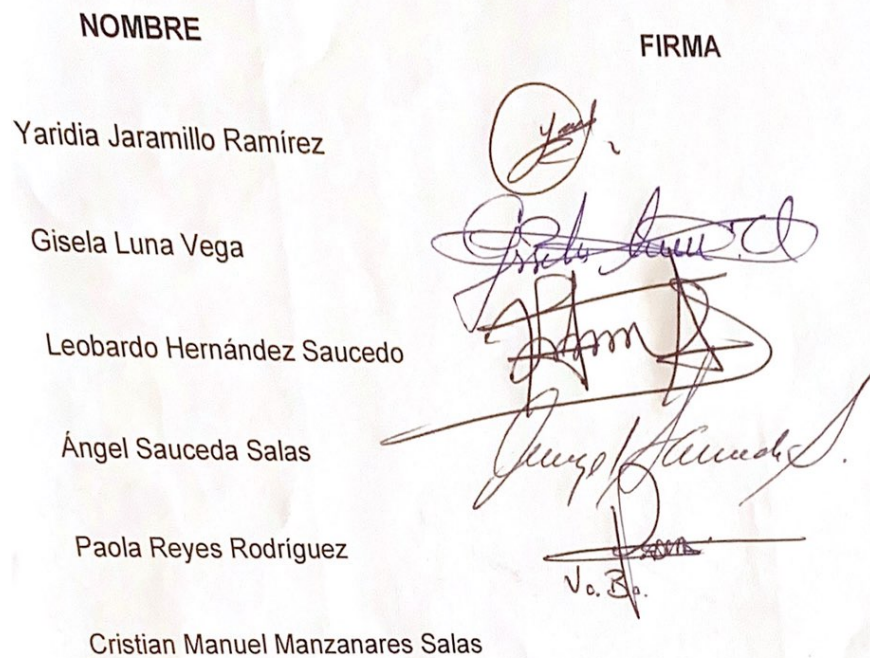 NOMBRE FIRMA
Yaridia Jaramillo Ramírez
Gisela Luna Vega
Leobardo Hernández Saucedo
Ángel Sauceda Salas
Paola Reyes Rodríguez
Vo. Bo.
Cristian Manuel Manzanares Salas